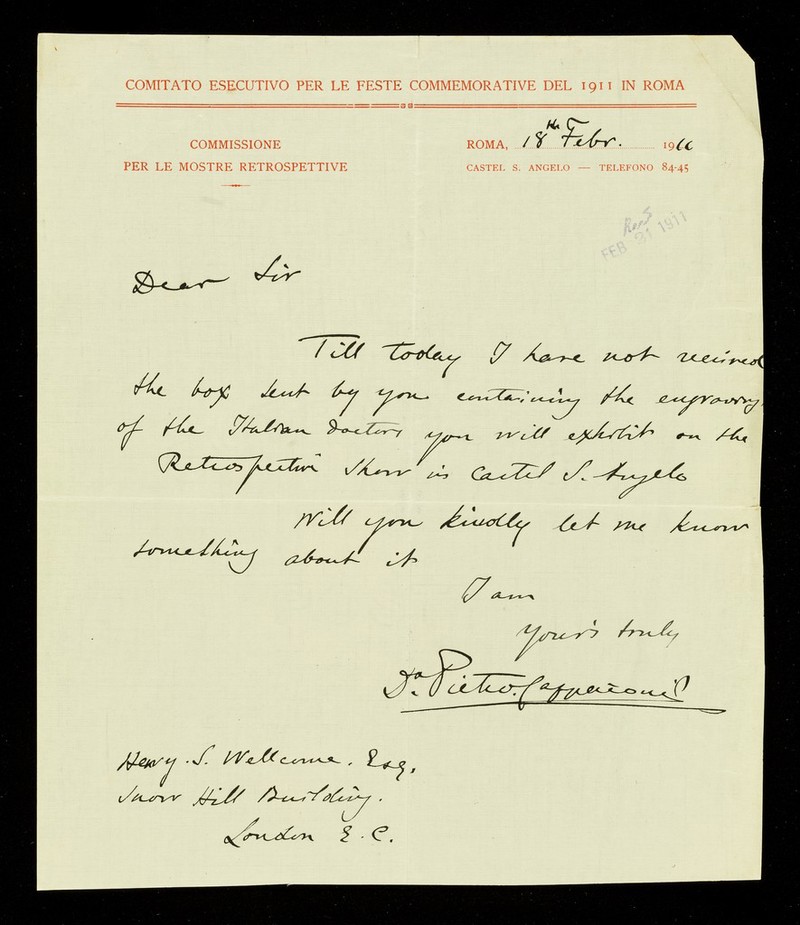 COMITATO ESECUTIVO PER LE FESTE COMMEMORATIVE DEL 1911 IN ROMA
COMMISSIONE
PER LE MOSTRE RETROSPETTIVE
ROMA, 18th Febr. 1911
CASTEL S. ANGELO — TELEFONO 84-45
Recd
FEB 21 1911
Dear Sir
Till today I have not recieved
the box sent by you containing the engravings
of the Italian doctors you will exhibit on the
Retrospective Show in Castel S. Angelo
Will you kindly let me know
something about it
I am
your's truly
Dr. Pietro Capparoni
Henry. S. Wellcome. Esq.
Snow Hill Building.
London E. C.